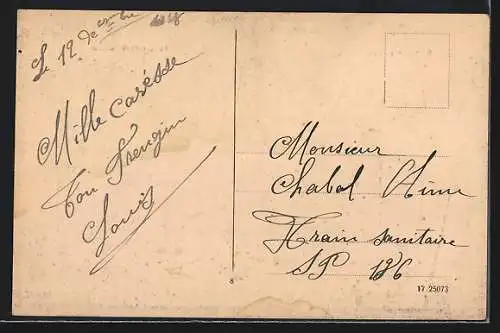 Le 12 decembre
Mille caresse
Ton
Louis
Monsieur
Chabal Aimé
Train sanitaire
SP 126
17 25073